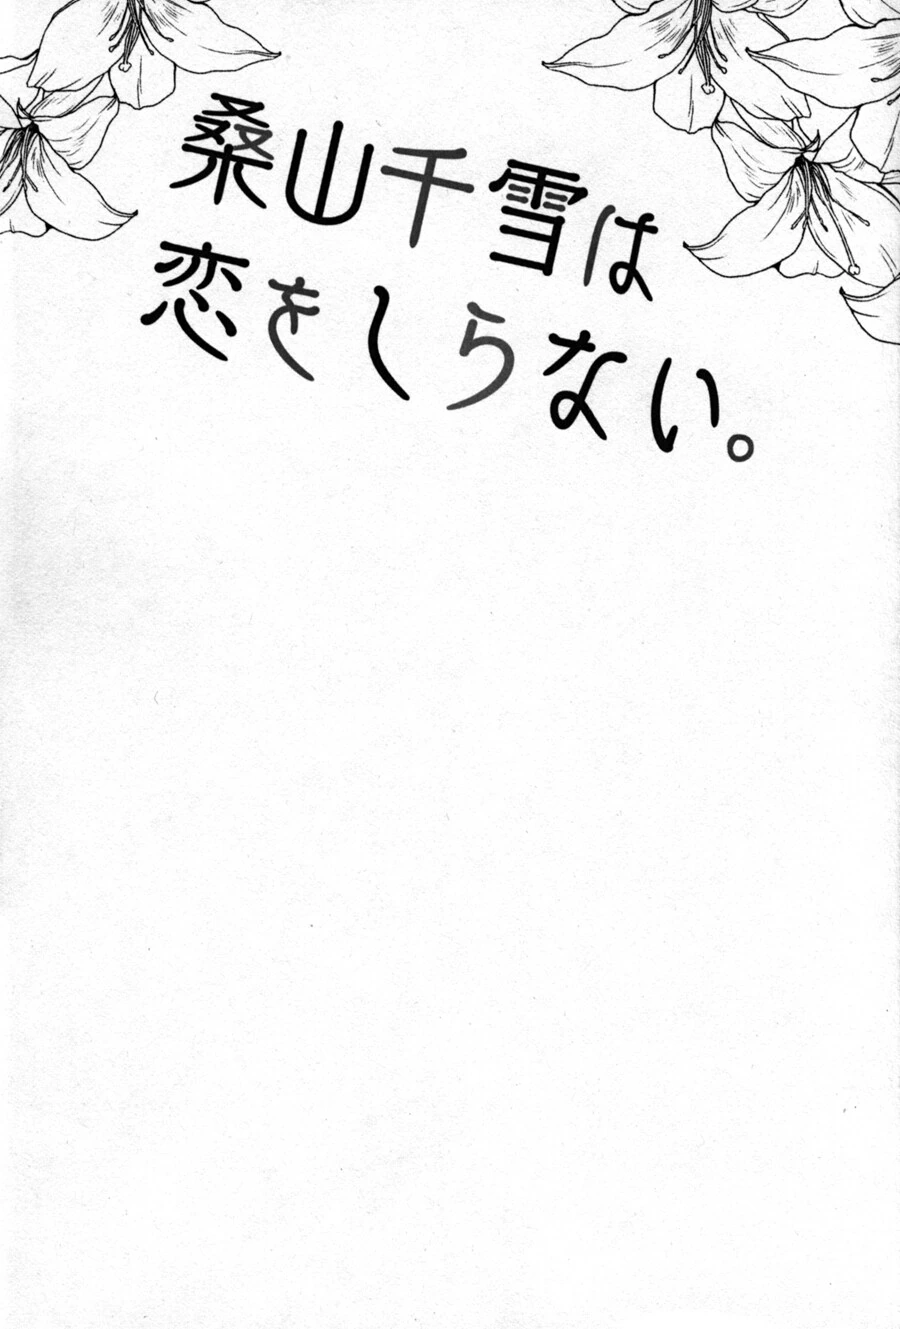 桑山千雪は
恋をしらない。